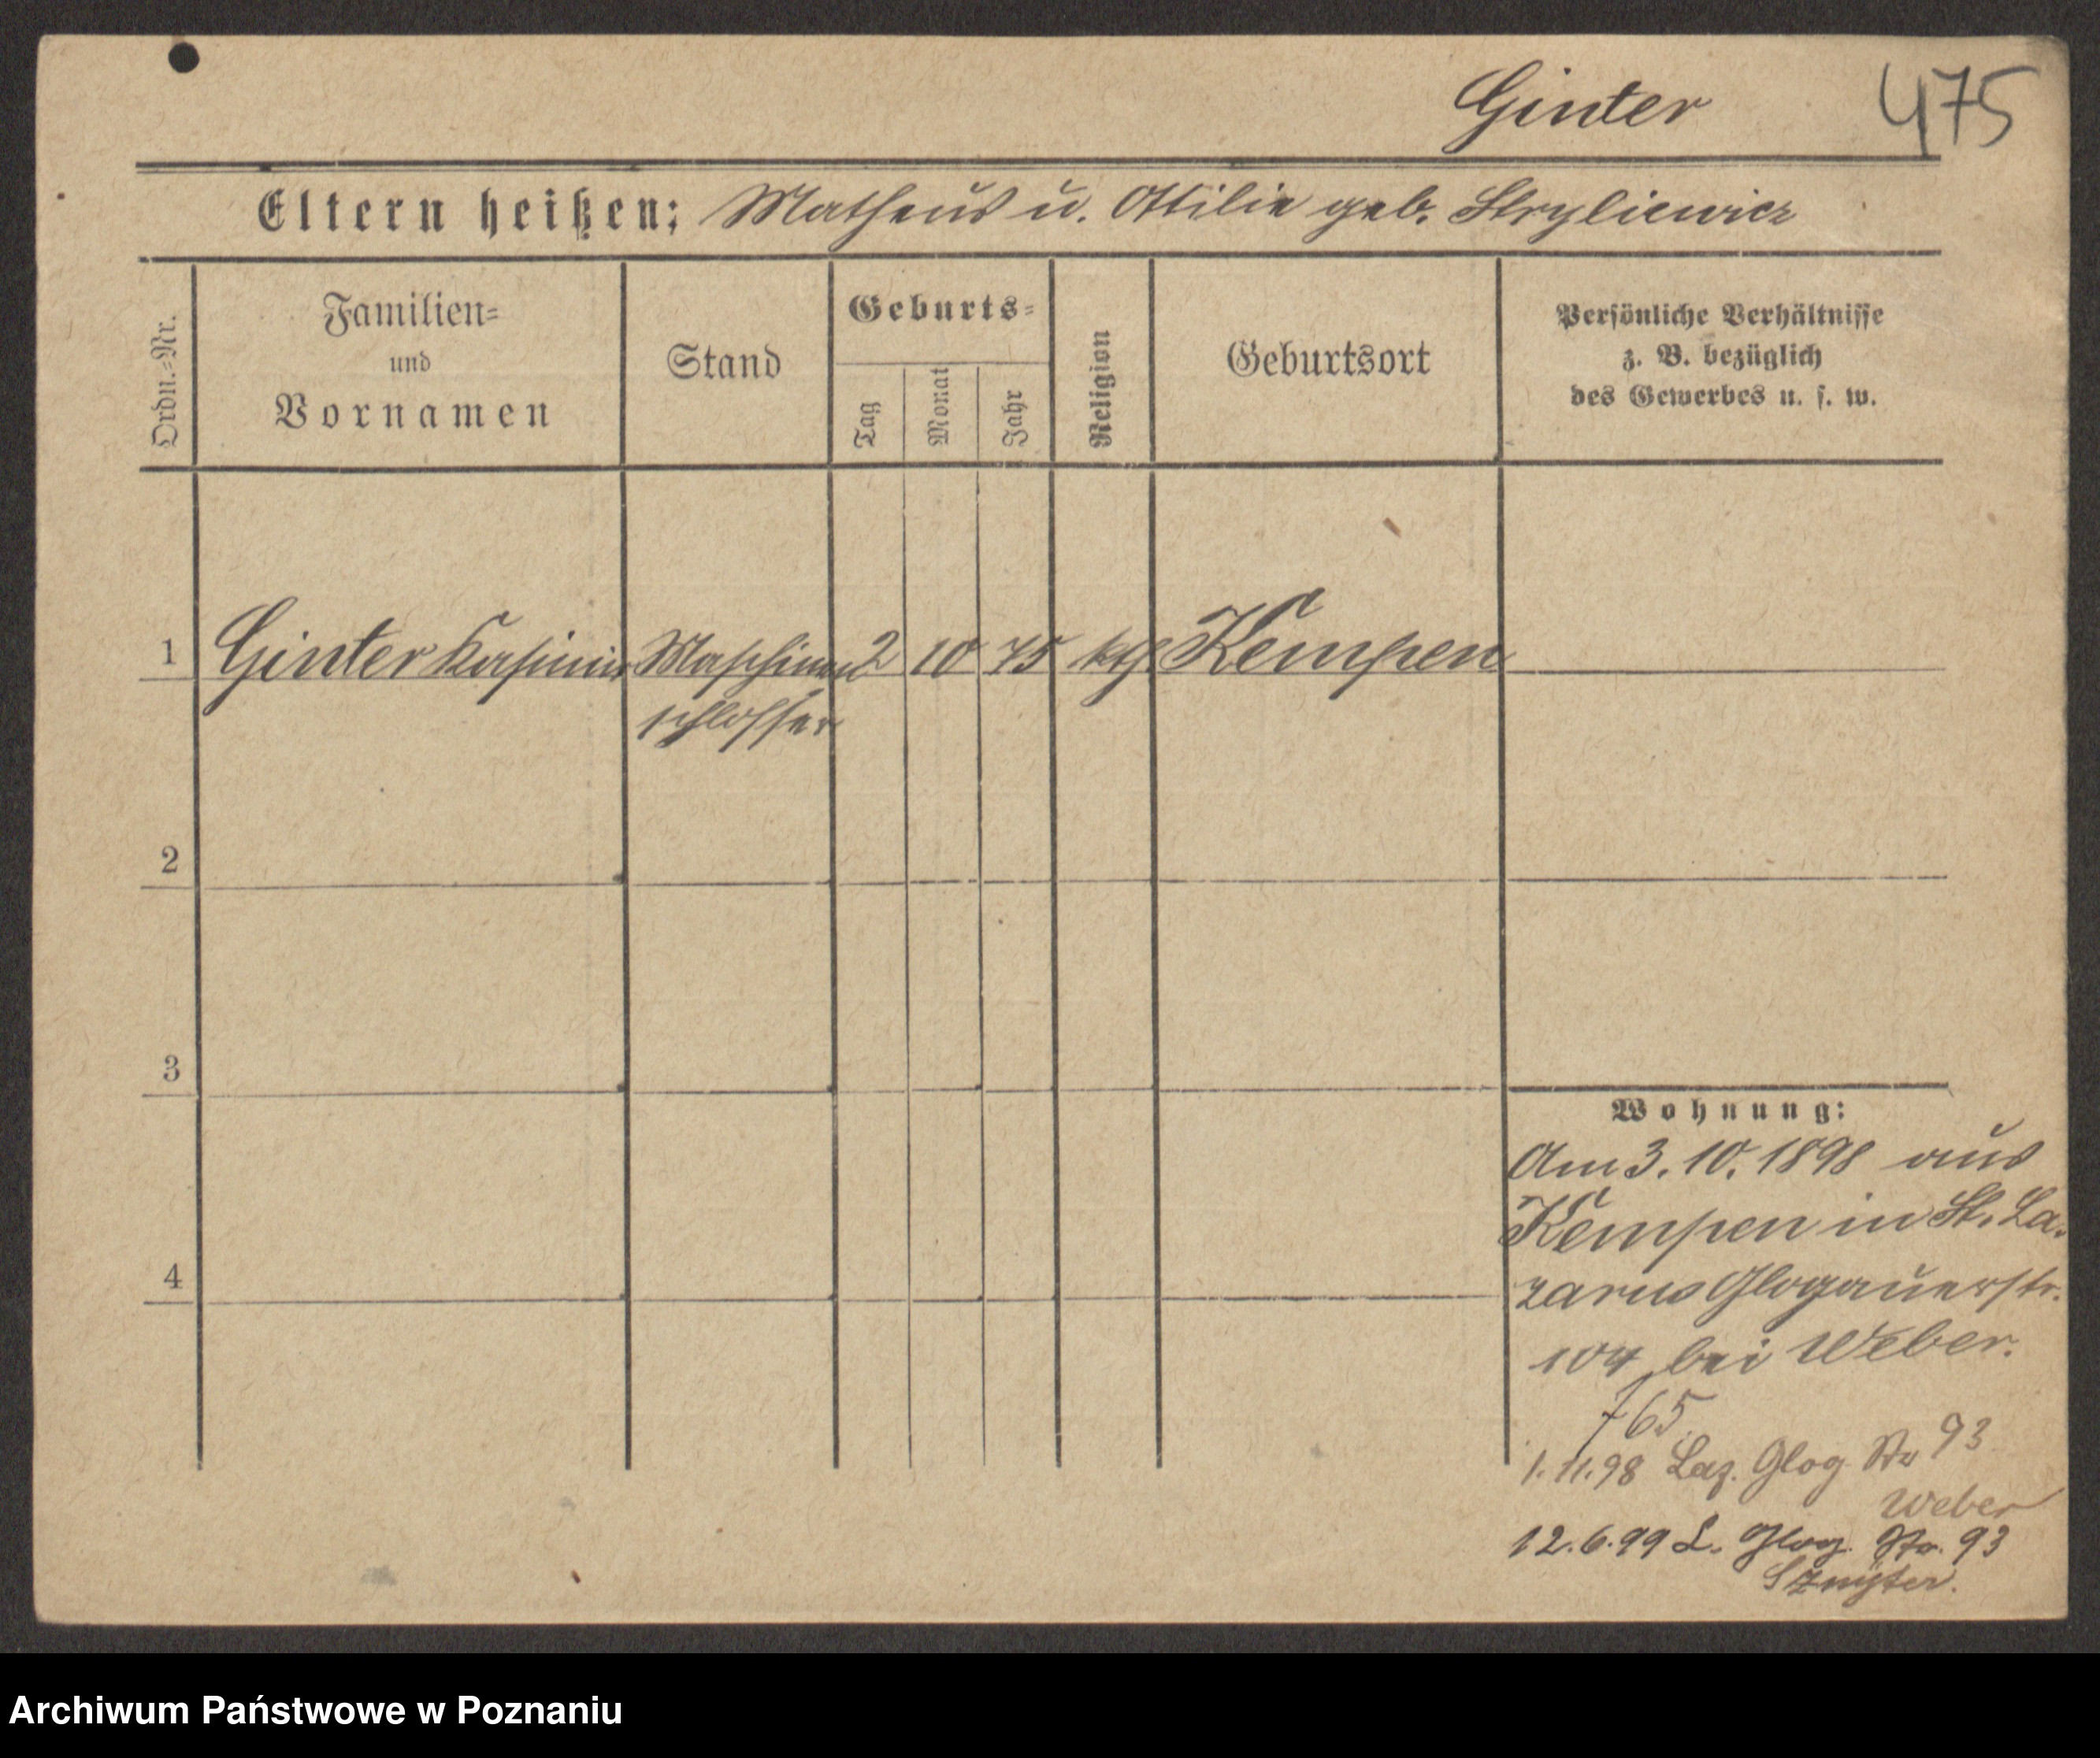 Ginter 475
Eltern heißen: Matheus u. Ottilie geb. Stryliewicz
Ordn.-Nr.
Familien-
und
Vornamen
Stand
Geburts-
Tag
Monat
Jahr
Religion
Geburtsort
Persönliche Verhältnisse
z. B. bezüglich
des Gewerbes u. s. w.
1 Ginter Kasimir Maschinen 2 10 75 kth Kempen
schlosser
2
3
4
Wohnung:
Am 3. 10. 1898 aus
Kempen in St. La-
zarus Glogauerstr.
104 bei Weber.
765
1. 11. 98 Laz. Glog Str 93
Weber
12. 6. 99 L. Glog. Str. 93
Archiwum Państwowe w Poznaniu